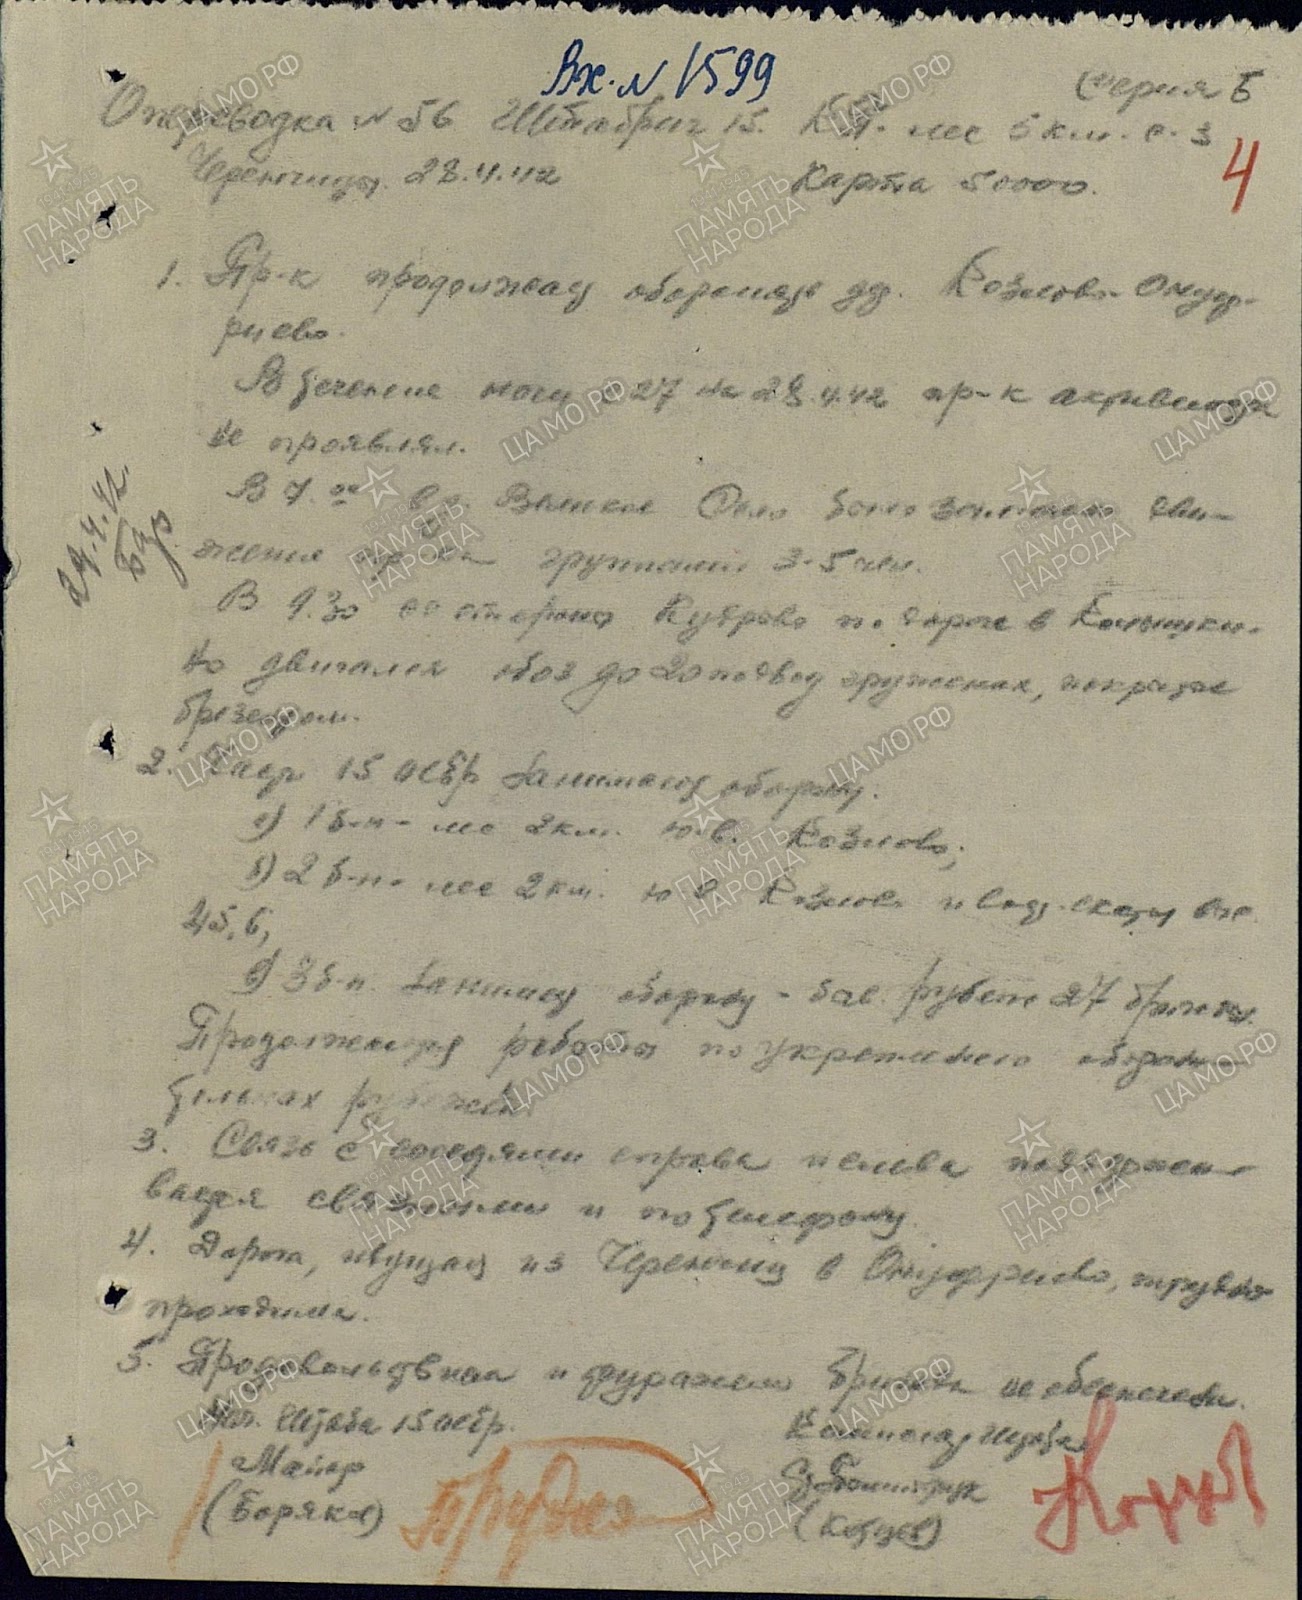 Вх. N 1599
Серия Б
Оперсводка N 56 Штабриг 15. КП. лес 5 км. с. з
4
Черенчицы. 28.4.42 Карта 50000.
1. Пр-к продолжает оборонять дд. Козлово - Онуф-
риево.
В течение ночи с 27 на 28.4.42 пр-к активности
не проявлял.
В 7.00 в д. Великое Село было замечено дви-
жение пр-ка группами 3-5 чел.
В 9.30 со стороны Кудрово по дороге в Колышки-
но двигался обоз до 20 подвод груженых, покрытые
брезентом.
2. Части 15 осбр занимают оборону.
а) 1 б-н - лес 2 км. ю.в. Козлово;
б) 2 б-н - лес 2 км. ю в. Козлово и скаты выс
45,6;
в) 3 б-н. занимает оборону - рубеж 27 бригады.
Продолжаются работы по укреплению оборони-
тельных рубежей.
3. Связь с соседями справа и слева поддержи-
вается связными и по телефону.
4. Дорога, идущая из Черенчиц в Онуфриево, трудно
проходима.
5. Продовольствием и фуражем бригада не обеспечена.
Нач. Штаба 15 осбр. Комиссар штаба
Майор Ст. Политрук
(Боряков) (Кобцев)
29.4.42.
ЦА МО РФ
ПАМЯТЬ
НАРОДА